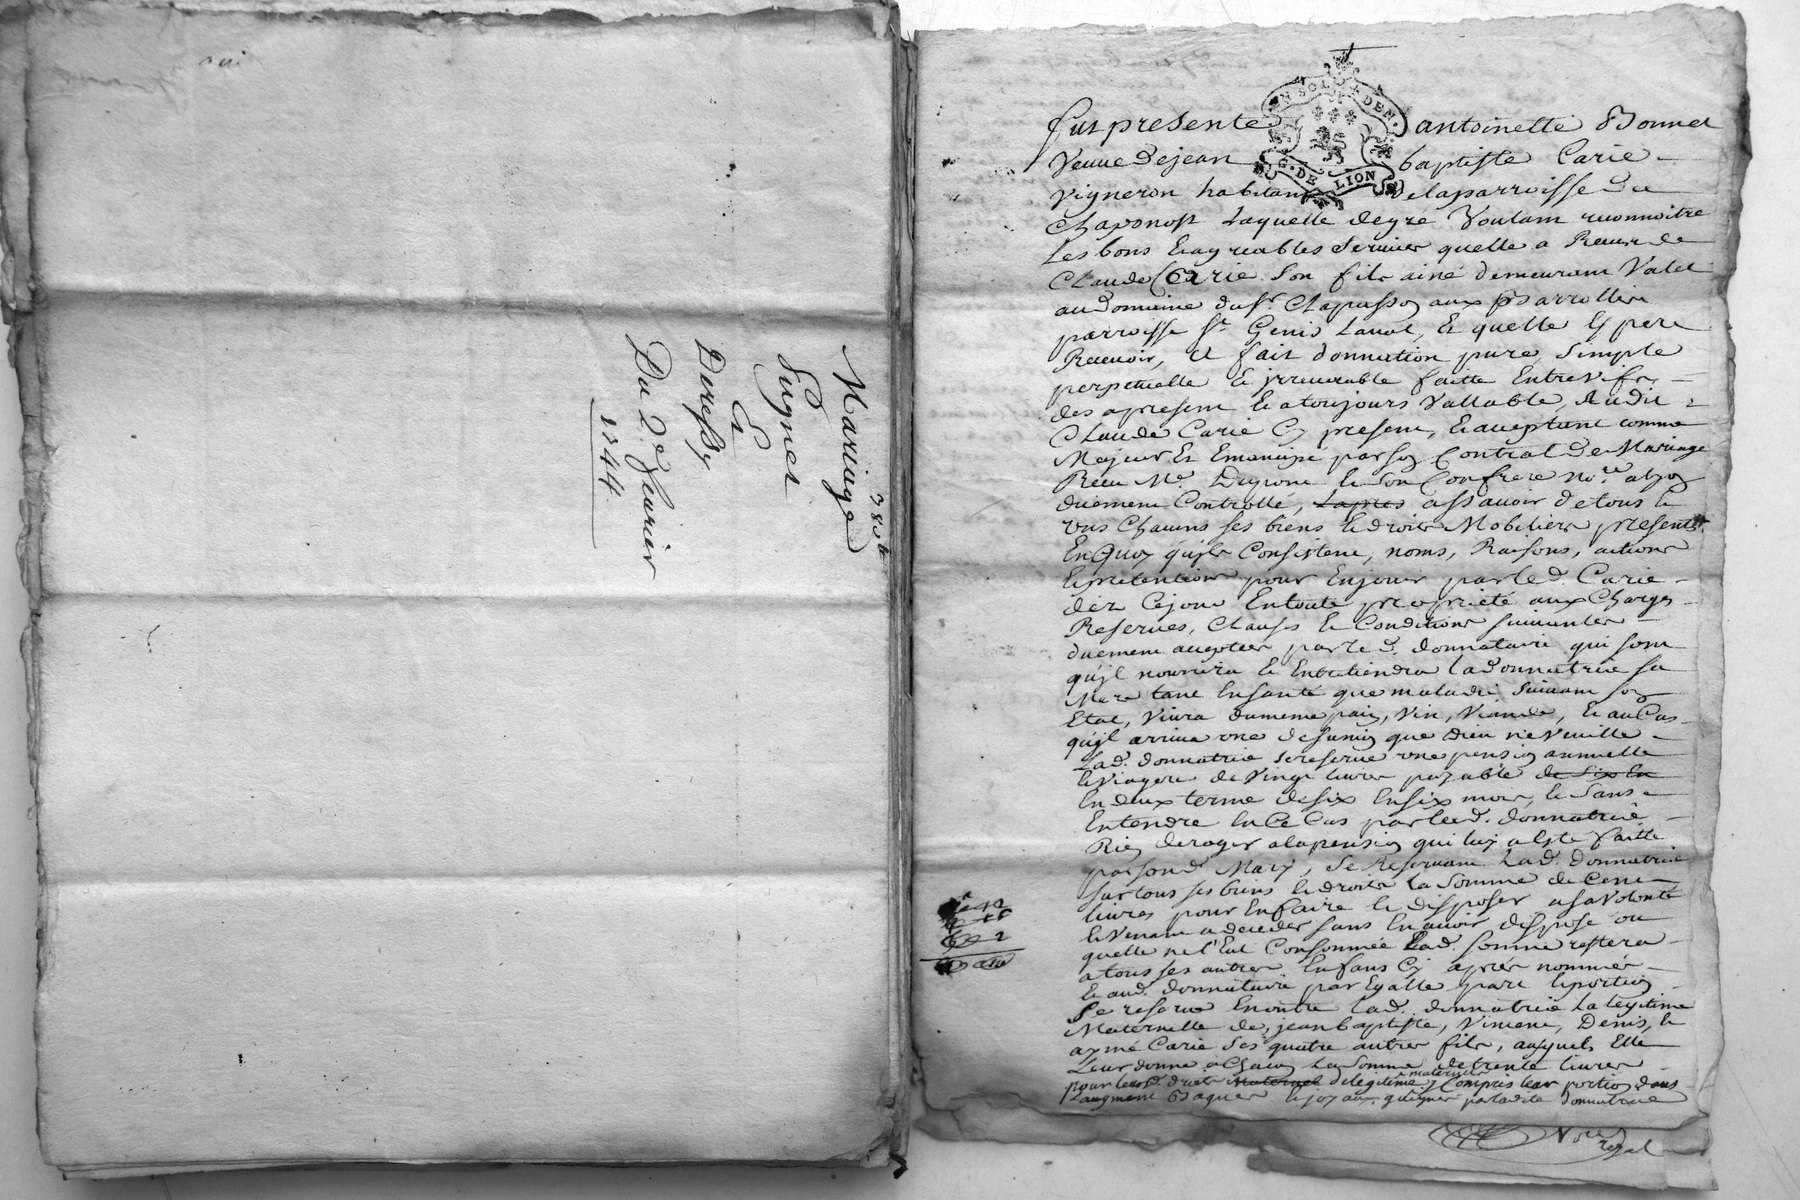 Mariage
Pugnet
Et
Deressy
Du 2e feurier
1744
fut presente antoinette Bonnet
Veuue de jean baptiste Carie
Vigneron habitant de la parroisse de
Chaponost Laquelle de gré Voulant reconnoitre
Les bons & agreables seruices quelle a Receu de
Claude Carie Son fils ainé demeurant Valet
au Domaine du Sr Clapasson aux
parroisse St Genis Laual, & quelle Espere
Receuoir, a fait donnation pure, Simple
perpetuelle & irreuocable faitte Entre Vifs
des apresent & a toujours Vallable, Audit
Claude Carie Cy present, & acceptant comme
Majeur Et Emancipé par son Contrat de Mariage
Receu Me & Son Confrere Nore
duement Controllé, assauoir de tous &
Vns Chacuns ses biens & droits Mobiliers presents
En Quoy qu'ils Consistent, noms, Raisons, actions
& pretentions pour En jouir par led. Carie
dez Cejour En toute proprieté aux Charges
Reserues, Clauses & Conditions suiuantes
duement acceptees par led. donnataire qui sont
qu'il nourrira & Entretiendra lad donnatrice sa
Mere tant En santé que maladie suiuant son
Etat, Viura du meme pain, Vin, Viande, & au Cas
qu'il arriua vne desunion que Dieu ne Veuille
Lad. donnatrice se reserue vne pension annuelle
& Viagere de Vingt liures payable de six En
En deux terme de six En six mois, & Sans
Entendre En Ce Cas par lad. donnatrice
Rien deroger a la pension qui luy a Esté faitte
par son d. Mary, Se Reseruant Lad. donnatrice
sur tous ses biens & droits La Somme de Cent
liures pour En faire & disposer a sa Volonté
& Venant a deceder sans En auoir disposé ou
quelle ne l'Eut Consommée Lad. somme restera
a tous ses autres Enfans Cy aprés nommés
& aud. donnataire par Egalle part & portion
Se reserue En outre lad. donnatrice La legitime
Maternelle de jean baptiste, Vincent, Denis, &
aymé Carie Ses quatre autres fils, ausquels Elle
Leur donne a Chacun La Somme de trente liures
pour leurs d. droits Maternel de legitime maternelle y Compris leur portion dans
L'augment Bagues & joyaux, gaignés par ladite donnatrice